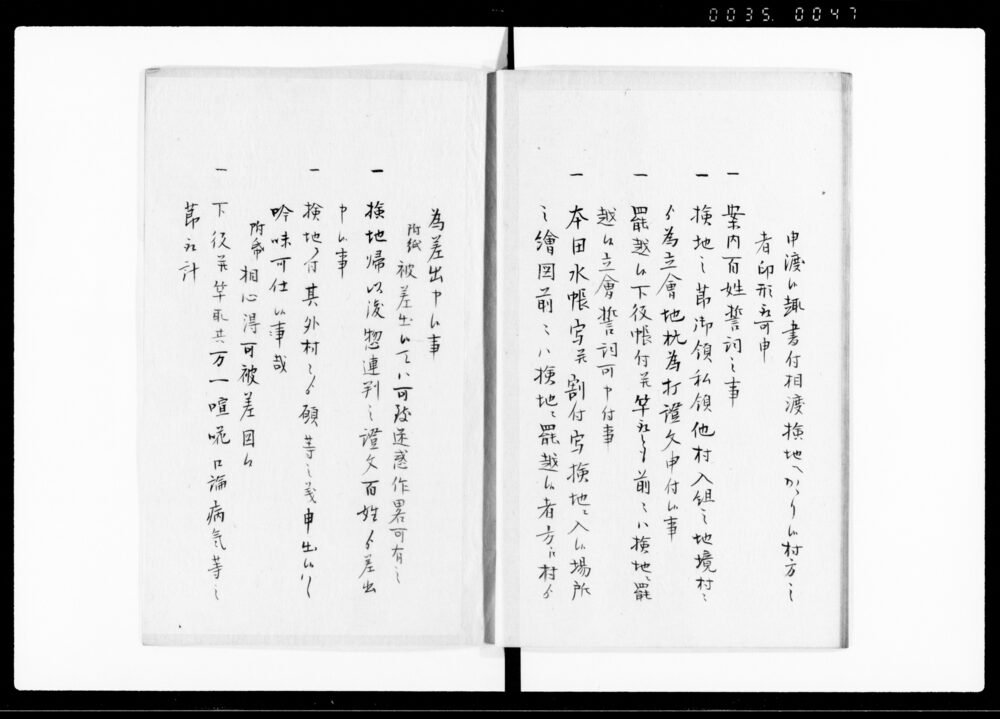 0035. 0047
申渡候趣書付相渡検地へかゝり候村方之
者印形取可申
一 案内百姓誓詞之事
一 検地之節御領私領他村入組之地境村々
ゟ為立會地杭為打證文申付候事
一 罷越候下役帳付并竿取ゟ前々ハ検地ニ罷
越候立會誓詞可申付事
一 本田水帳写并割付写検地ニ入候場所
之繪図前々ハ検地ニ罷越候者方江村ゟ
為差出申候事
附紙 被差出候てハ可致迷惑作畧可有之
一 検地帰以後惣連判之證文百姓ゟ差出
申候事
一 検地ニ付其外村々ゟ願等之義申出候ハヽ
吟味可仕候事哉
附紙 相心得可被差図候
一 下役并竿取共万一喧嘩口論病気等之
節取計